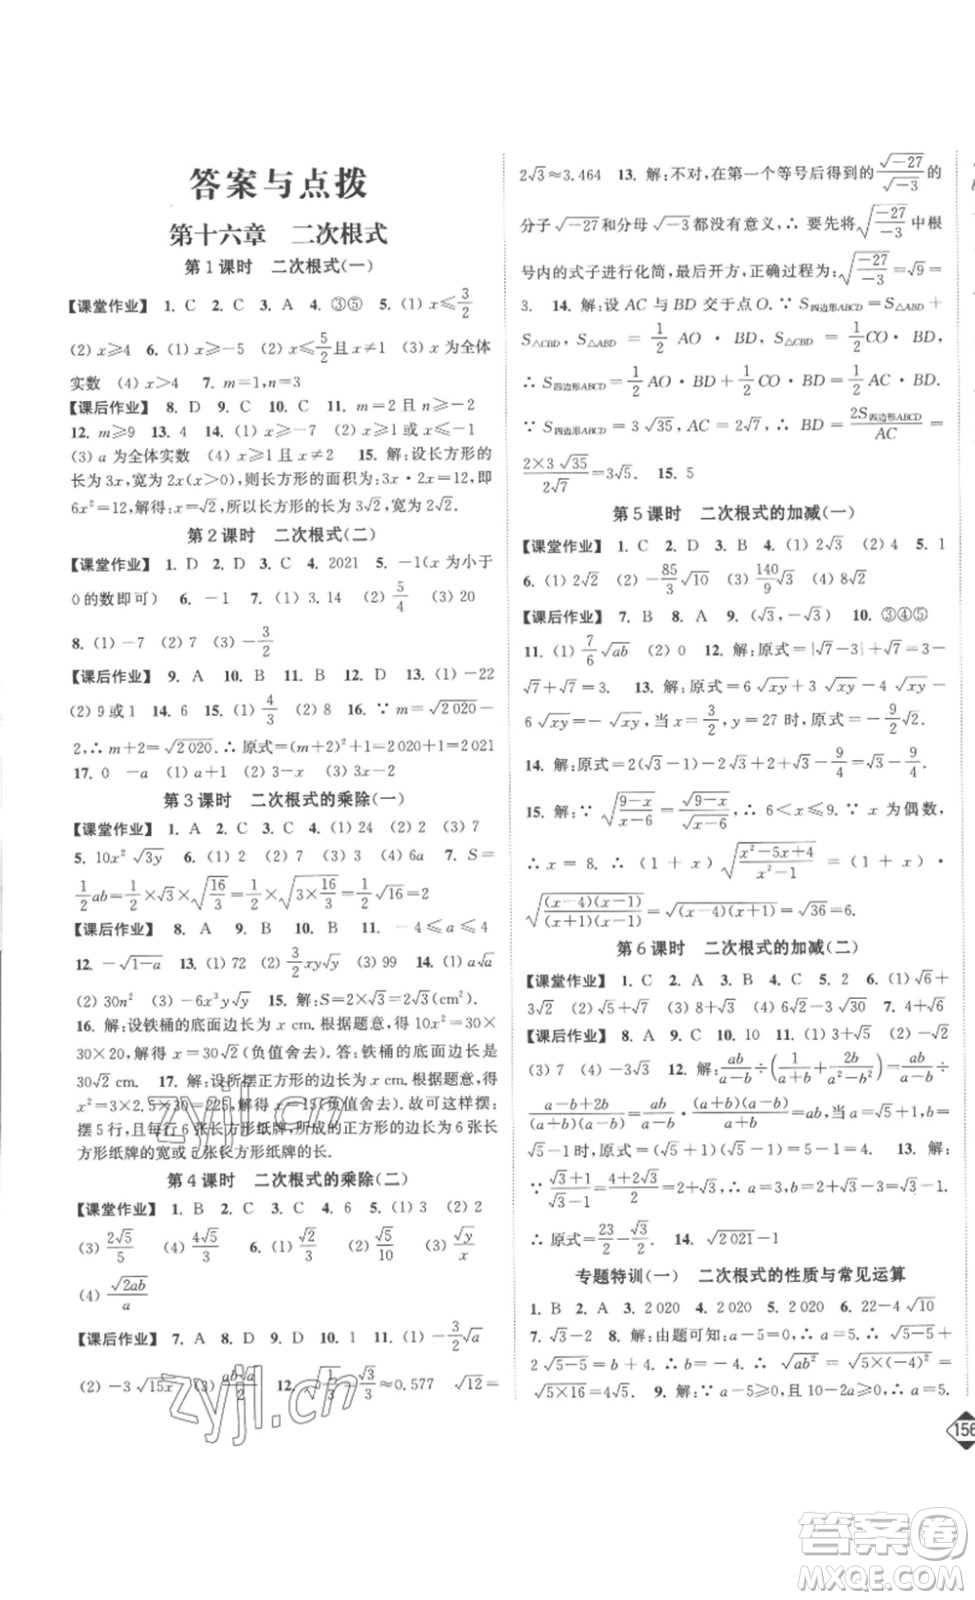 答案与点拨
第十六章 二次根式
第1课时 二次根式(一)
【课堂作业】 1. C 2. C 3. A 4. ③⑤ 5. (1) x≤3/2
(2) x≥4 6. (1) x≥-5 (2) x≤5/2且x≠1 (3) x为全体
实数 (4) x>4 7. m=1,n=3
【课后作业】 8. D 9. C 10. C 11. m=2且n≥-2
12. m≥9 13. 4 14. (1) x≥1 (2) x≤0或x≤-1
(3) a为全体实数 (4) x≥1且x≠2 15. 解:设长方形的
长为3x,宽为2x(x>0),根据长方形的面积为:3x·2x=12,即
6x²=12,解得:x=√2,所以长方形的长为3√2,宽为2√2.
第2课时 二次根式(二)
【课堂作业】 1. D 2. D 3. B 4. 2021 5. -1(x为小于
0的数即可) 6. -1 7. (1) 3.14 (2) 5/4 (3) 20
8. (1) -7 (2) 7 (3) -3/2
【课后作业】 9. A 10. B 11. A 12. B 13. (1) -22
(2) 9或1 14. 6 15. (1) 4/3 (2) 8 16. ∵ m=√2020-
2,∴ m+2=√2020.∴ 原式=(m+2)²+1=2020+1=2021
17. 0 -a (1) a+1 (2) 3-x (3) -1
第3课时 二次根式的乘除(一)
【课堂作业】 1. A 2. C 3. B 4. (1) 24 (2) 2 (3) 7
5. 10x²√3y 6. (1) 2 (2) 7 (3) (4) 6a 7. S=
1/2ab=1/2×√3×√16/3=1/2×√3×16/3=1/2√16=2
【课后作业】 8. A 9. B 10. B 11. -4≤a≤4
12. -√1-a 13. (1) 72 (2) 3/2xy√y (3) 99 14. (1) a√a
(2) 30n² (3) -6x³y√y 15. 解:S=2×√3=2√3(cm²).
16. 解:设铁桶的底面边长为x cm.根据题意,得10x²=30×
30×20,解得x=30√2(负值舍去).答:铁桶的底面边长为
30√2 cm. 17. 解:设所摆正方形的边长为x cm.根据题意,得
x²=3×2.5×30=225,解得x=15(负值舍去).故可这样摆:
摆5行,且每行6张长方形纸牌,所成的正方形边长为6张长
方形纸牌的宽或5张长方形纸牌的长.
第4课时 二次根式的乘除(二)
【课堂作业】 1. B 2. C 3. C 4. 6 5. (1) 3 (2) 2
(3) 2√5/5 (4) 4√5/5 6. (1) √2/3 (2) √5/10 (3) √y/x
(4) √2ab/a
【课后作业】 7. A 8. A 9. B 10. D 11. (1) -3/2√a
(2) -3√15x (3) 12. √1/3=√3/3≈0.577 √12=
2√3≈3.464 13. 解:不对,在第一个等号后出现的√-27/√-3的
分子√-27和分母√-3都没有意义,∴ 要先将√-27/-3中根
号内的式子进行化简,正确过程为:√-27/-3=√9=
3. 14. 解:设AC与BD交于点O.∵ S四边形ABCD=S△ABD+
S△CBD,S△ABD=1/2AO·BD,S△CBD=1/2CO·BD,
∴ S四边形ABCD=1/2AO·BD+1/2CO·BD=1/2AC·BD.
∵ S四边形ABCD=3√35,AC=2√7,∴ BD=2S四边形ABCD/AC=
2×3√35/2√7=3√5. 15. 5
第5课时 二次根式的加减(一)
【课堂作业】 1. C 2. D 3. B 4. (1) 2√3 (2) 4 5. 1
6. (1) 2√2 (2) -85/3√10 (3) 140/9√3 (4) 8√2
【课后作业】 7. B 8. A 9. (√3,-√3) 10. ③④⑤
11. (1) 7/6√ab (2) 0 12. 解:原式=|√7-3|+√7=3-
√7+√7=3. 13. 解:原式=6√xy+3√xy-4√xy-
6√xy=-√xy,当x=3/2,y=27时,原式=-9/2√2.
14. 解:原式=2(√3-1)-2√3+2-9/4=-9/4.
15. 解:∵ √9-x/x-6=√9-x/√x-6,∴ 6<x≤9.∵ x为偶数,
∴ x=8.∴ (1+x)√x²-5x+4/x²-1=(1+x)·
√(x-4)(x-1)/(x+1)(x-1)=√(x-4)(x+1)=√36=6.
第6课时 二次根式的加减(二)
【课堂作业】 1. C 2. A 3. B 4. C 5. 2 6. (1) √6+
3√2 (2) 4 (3) 8+4√3 (4) 6-3√30 7. 4+√6
【课后作业】 8. A 9. C 10. 10 11. (1) 3+√5 (2) -√2
(3) 7 (4) 2√3 12. 解:ab/a-b÷(1/a+b+2b/a²-b²)=ab/a-b÷
a-b+2b/(a+b)(a-b)=ab/a-b·(a+b)(a-b)/a+b=ab,当a=√5+1,b=
√5-1时,原式=(√5+1)(√5-1)=5-1=4. 13. 解:
∵ √3+1/√3-1=4+2√3/2=2+√3,∴ a=3,b=2+√3-3=√3-1.
∴ 原式=23/2-√3/2. 14. √2021-1
专题特训(一) 二次根式的性质与常见运算
1. B 2. A 3. 2020 4. 2020 5. 2020 6. 22-4√10
7. √3-2 8. 解:由题可知:a-5=0,∴ a=5.∴ √5-5+
2√5-5=b+4.∴ b=-4.∴ √ab²=√5×(-4)²=
√5×16=4√5. 9. 解:∵ a-5≥0,10-2a≥0,∴ a=5.
156
答案卷
MXQE.COM
zyjl.cn
zyjl.cn